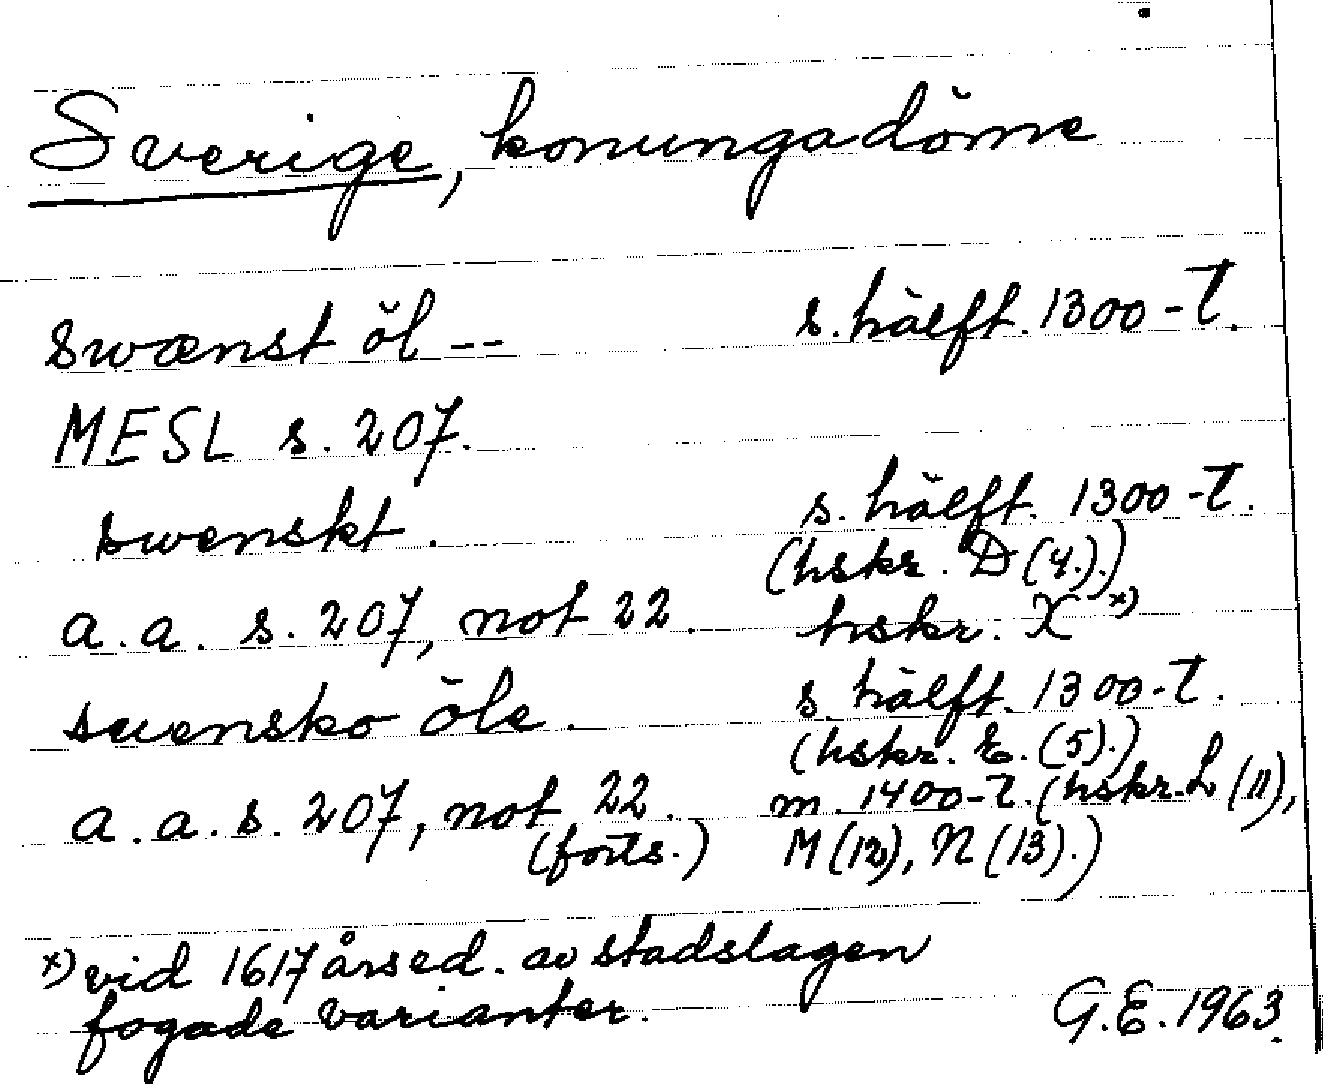 Sverige, konungadöme
swænst öl -- s. hälft. 1300-t.
MESL s. 207.
swenskt. s. hälft. 1300-t.
(hskr. D (4).)
a.a. s. 207, not 22. hskr. X x)
suensko öle. s. hälft. 1300-t.
(hskr. E. (5).)
a.a. s. 207, not 22. m. 1400-t. (hskr. L (11),
(forts.) M (12), N (13).)
x) vid 1617 årsed. av stadslagen
fogade varianter.
G.E. 1963.